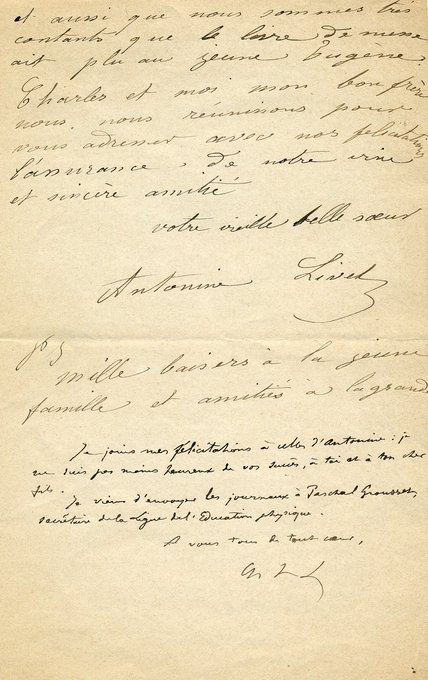 et aussi que nous sommes très
contents que le livre de messe
ait plu au jeune Eugène.
Charles et moi mon bon frère
nous nous réunissons pour
vous adresser avec nos félicitations
l'assurance, de notre vive
et sincère amitié
votre vieille belle sœur
Antonine Livet
mille baisers à la jeune
famille et amitiés à la grande
Je joins mes félicitations à celles d'Antonine : je
ne suis pas moins heureux de vos succès, à toi et à ton cher
fils.
Je viens d'envoyer les journaux à Paschal Grousset,
secrétaire de la Ligue de l'Education physique.
A vous tous de tout cœur,